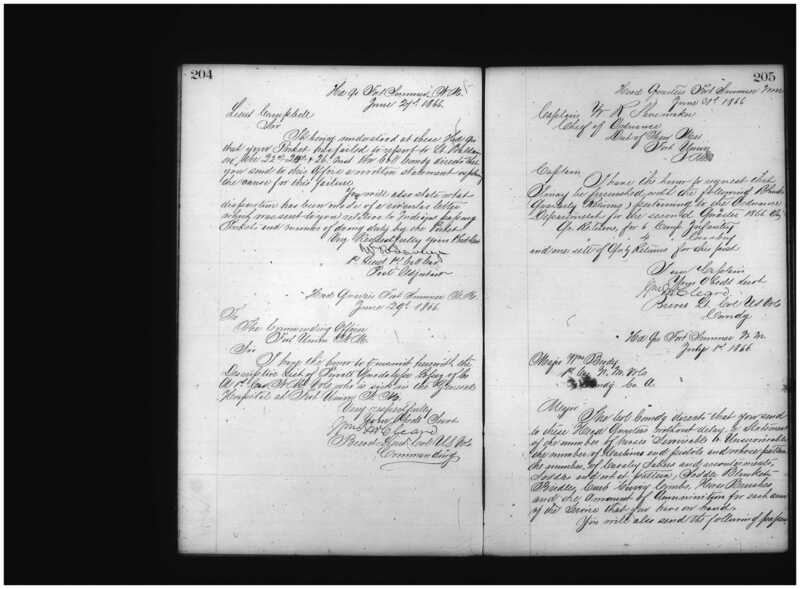 204
Hd Qs Fort Sumner N. M.
June 27th 1866
Lieut Campbell
Sir
It being understood at these Hd Qs
that your Picket has failed to report to
22nd 24th & 26 inst the Col Comdg directs that
you send to this Office a written statement
the cause for this failure.
You will also state what
disposition has been made of a circular letter
which was sent to you relation to Indians passing
Pickets and number of days duty by the Picket
Very Respectfully Your
1st Lieut 1st Cal Cav
Post Adjutant
Head Quarters Fort Sumner N. M.
June 29th 1866
To
The Commanding Officer
Fort Union N. M.
Sir
I have the honor to transmit herewith the
Descriptive List of Private Guadalupe of Co
A 1st Cav N. M. Vols who is sick in the General
Hospital at Fort Union N. M.
Very respectfully
Your Obedt Servt
Brevet Lieut Col U S Vols
Commanding
205
Head Quarters Fort Sumner N M
June 30th 1866
Captain W R Shoemaker
Chief of Ordnance
Dist of New Mex
Fort Union
N. M.
Captain
I have the honor to request that
I may be furnished with the following Blanks
Quarterly Returns pertaining to the Ordnance
Department for the second Quarter 1866
Qr Returns for 6 Comp Infantry
4 " Cavalry
and one sett of Qtly Returns for this post
I am Captain
Your Obedt Servt
Brevet Lt Col U S Vols
Comdg
Hd Qs Fort Sumner N. M.
July 1st 1866
Major Wm Brady
1st Cav N. M Vols
Comdg Co A.
Major
The Col Comdg directs that you send
to these Head Quarters without delay a Statement
of the number of horses Serviceable & Unserviceable
the number of Carbines and pistols and whose pattern
the number of Cavalry Sabres and accoutrements,
Saddles and what pattern, Saddle Blankets
Bridles, Curb Curry Combs, Horse Brushes,
and the amount of Ammunition for each arm
of the Service that you have on hand.
You will also send the following